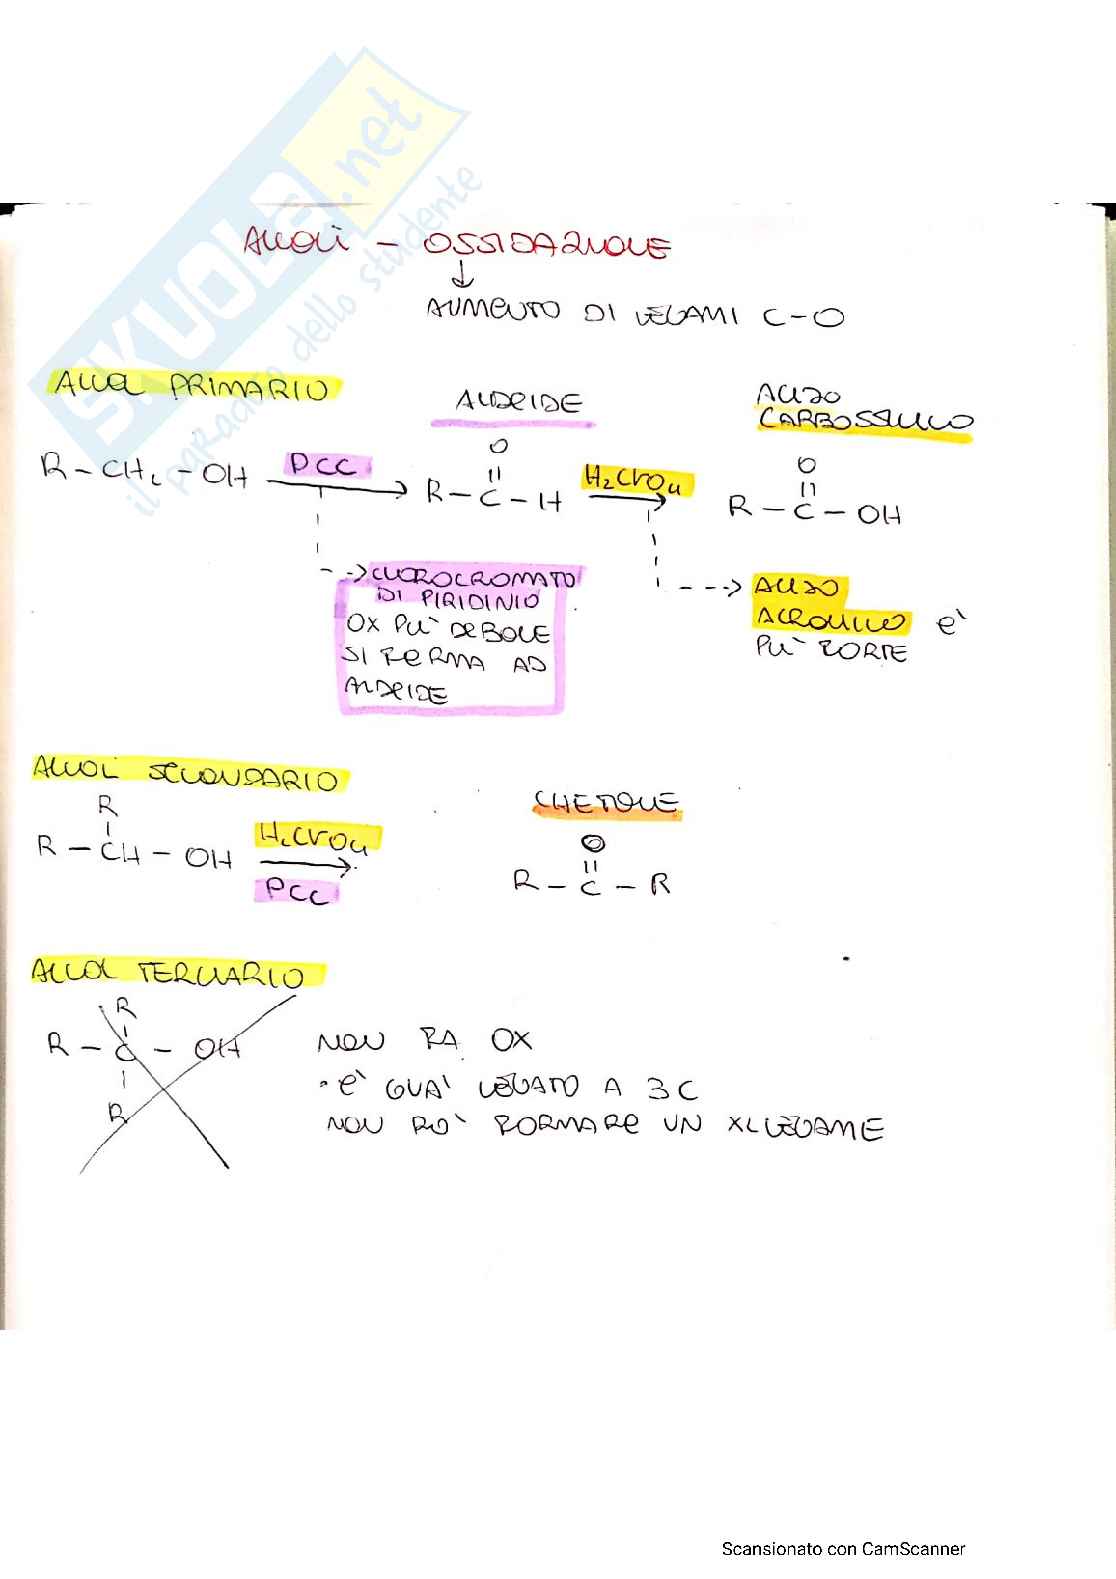 SKUOLA.net
il paradiso dello studente
ALCOLI - OSSIDAZIONE
AUMENTO DI LEGAMI C-O
ALCOL PRIMARIO
ALDEIDE
ACIDO
CARBOSSILICO
R-CH2-OH PCC R-C-H H2CrO4 R-C-OH
O
O
CLOROCROMATO
DI PIRIDINIO
OX PIÙ DEBOLE
SI FERMA AD
ALDEIDE
ACIDO
ACROMICO è
PIÙ FORTE
ALCOL SECONDARIO
CHETONE
R
O
R-CH-OH H2CrO4 R-C-R
PCC
ALCOL TERZIARIO
R
R-C-OH
R
NON FA OX
• è GIÀ LEGATO A 3C
NON PUÒ FORMARE UN XLLEGAME
Scansionato con CamScanner